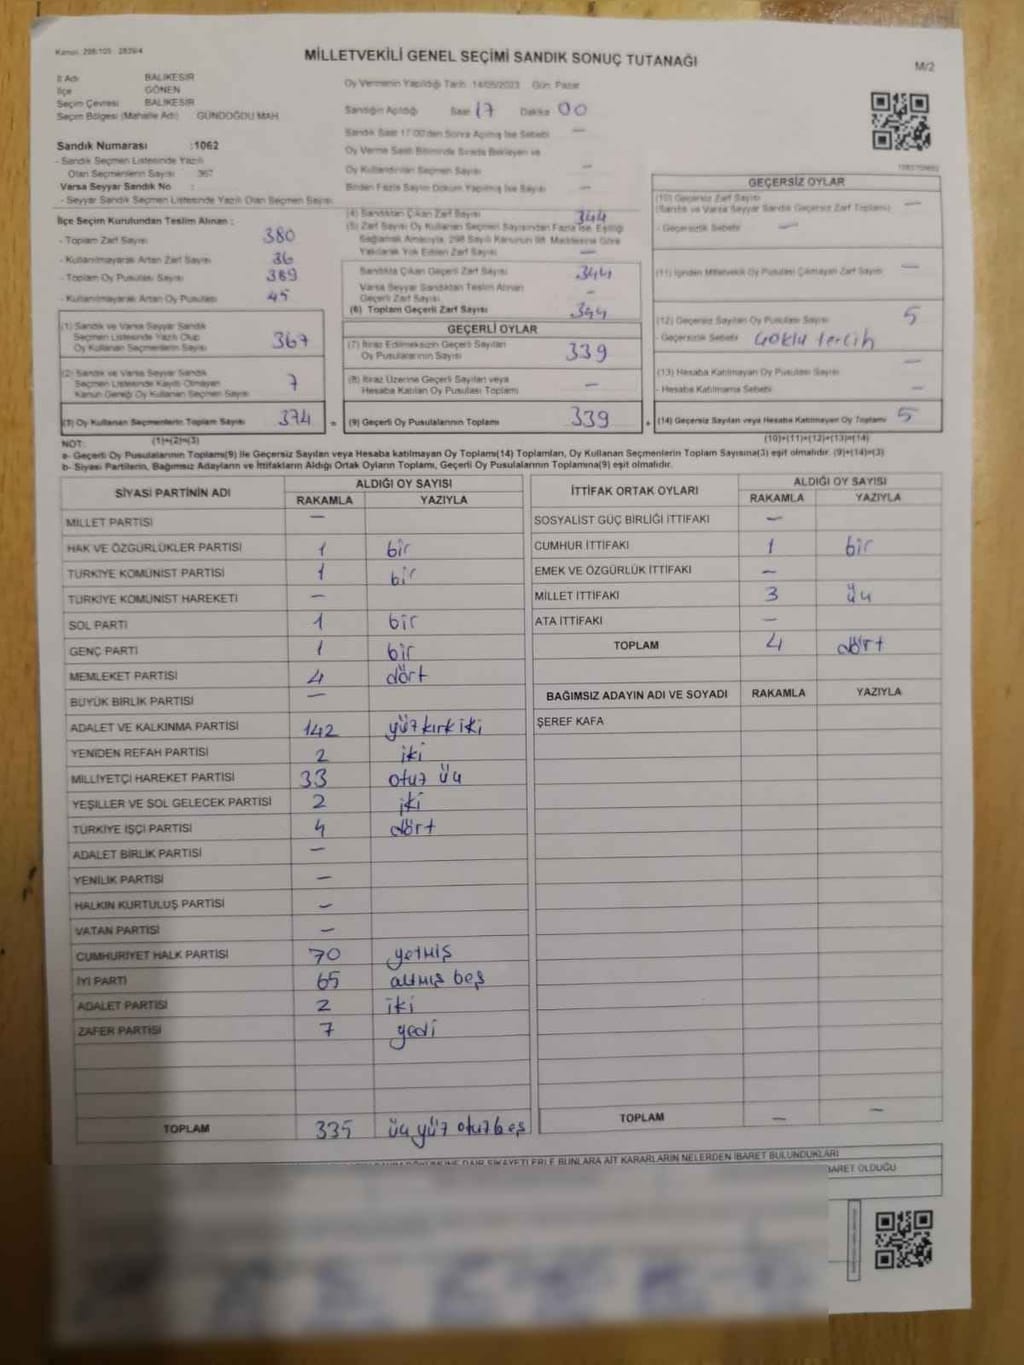 Kanun: 298/105 2839/4
MİLLETVEKİLİ GENEL SEÇİMİ SANDIK SONUÇ TUTANAĞI
M/2
İl Adı BALIKESİR
İlçe GÖNEN
Seçim Çevresi BALIKESİR
Seçim Bölgesi (Mahalle Adı) GÜNDOĞDU MAH.
Oy Vermenin Yapıldığı Tarih 14/05/2023 Gün: Pazar
Sandığın Açıldığı Saat 17 Dakika 00
Sandık Saat 17:00'den Sonra Açılmış İse Sebebi —
Oy Verme Saati Bitiminde Sırada Bekleyen ve
Oy Kullandırılan Seçmen Sayısı —
Birden Fazla Sayım Döküm Yapılmış İse Sayısı —
Sandık Numarası :1062
- Sandık Seçmen Listesinde Yazılı
Olan Seçmenlerin Sayısı 367
Varsa Seyyar Sandık No :
- Seyyar Sandık Seçmen Listesinde Yazılı Olan Seçmen Sayısı
İlçe Seçim Kurulundan Teslim Alınan :
- Toplam Zarf Sayısı 380
- Kullanılmayarak Artan Zarf Sayısı 36
- Toplam Oy Pusulası Sayısı 389
- Kullanılmayarak Artan Oy Pusulası 45
(1) Sandık ve Varsa Seyyar Sandık
Seçmen Listesinde Yazılı Olup
Oy Kullanan Seçmenlerin Sayısı 367
(2) Sandık ve Varsa Seyyar Sandık
Seçmen Listesinde Kayıtlı Olmayan
Kanun Gereği Oy Kullanan Seçmen Sayısı 7
(3) Oy Kullanan Seçmenlerin Toplam Sayısı 374 =
(1)+(2)=(3)
(4) Sandıktan Çıkan Zarf Sayısı 344
(5) Zarf Sayısı Oy Kullanan Seçmen Sayısından Fazla İse, Eşitliği
Sağlamak Amacıyla, 298 Sayılı Kanunun 98. Maddesine Göre
Yakılarak Yok Edilen Zarf Sayısı —
Sandıkta Çıkan Geçerli Zarf Sayısı 344
Varsa Seyyar Sandıktan Teslim Alınan
Geçerli Zarf Sayısı —
(6) Toplam Geçerli Zarf Sayısı 344
GEÇERLİ OYLAR
(7) İtiraz Edilmeksizin Geçerli Sayılan
Oy Pusulalarının Sayısı 339
(8) İtiraz Üzerine Geçerli Sayılan veya
Hesaba Katılan Oy Pusulası Toplamı —
(9) Geçerli Oy Pusulalarının Toplamı 339 +
GEÇERSİZ OYLAR
(10) Geçersiz Zarf Sayısı
(Sandık ve Varsa Seyyar Sandık Geçersiz Zarf Toplamı) —
- Geçersizlik Sebebi —
(11) İçinden Milletvekili Oy Pusulası Çıkmayan Zarf Sayısı —
(12) Geçersiz Sayılan Oy Pusulası Sayısı 5
- Geçersizlik Sebebi Çoklu tercih
(13) Hesaba Katılmayan Oy Pusulası Sayısı —
- Hesaba Katılmama Sebebi —
(14) Geçersiz Sayılan veya Hesaba Katılmayan Oy Toplamı 5
(10)+(11)+(12)+(13)=(14)
NOT:
a- Geçerli Oy Pusulalarının Toplamı(9) ile Geçersiz Sayılan veya Hesaba katılmayan Oy Toplamı(14) Toplamları, Oy Kullanan Seçmenlerin Toplam Sayısına(3) eşit olmalıdır. (9)+(14)=(3)
b- Siyasi Partilerin, Bağımsız Adayların ve İttifakların Aldığı Ortak Oyların Toplamı, Geçerli Oy Pusulalarının Toplamına(9) eşit olmalıdır.
SİYASİ PARTİNİN ADI ALDIĞI OY SAYISI
RAKAMLA YAZIYLA
MİLLET PARTİSİ —
HAK VE ÖZGÜRLÜKLER PARTİSİ 1 bir
TÜRKİYE KOMÜNİST PARTİSİ 1 bir
TÜRKİYE KOMÜNİST HAREKETİ —
SOL PARTİ 1 bir
GENÇ PARTİ 1 bir
MEMLEKET PARTİSİ 4 dört
BÜYÜK BİRLİK PARTİSİ —
ADALET VE KALKINMA PARTİSİ 142 yüz kırk iki
YENİDEN REFAH PARTİSİ 2 iki
MİLLİYETÇİ HAREKET PARTİSİ 33 otuz üç
YEŞİLLER VE SOL GELECEK PARTİSİ 2 iki
TÜRKİYE İŞÇİ PARTİSİ 4 dört
ADALET BİRLİK PARTİSİ —
YENİLİK PARTİSİ —
HALKIN KURTULUŞ PARTİSİ —
VATAN PARTİSİ —
CUMHURİYET HALK PARTİSİ 70 yetmiş
İYİ PARTİ 65 altmış beş
ADALET PARTİSİ 2 iki
ZAFER PARTİSİ 7 yedi
TOPLAM 335 üç yüz otuz beş
İTTİFAK ORTAK OYLARI ALDIĞI OY SAYISI
RAKAMLA YAZIYLA
SOSYALİST GÜÇ BİRLİĞİ İTTİFAKI —
CUMHUR İTTİFAKI 1 bir
EMEK VE ÖZGÜRLÜK İTTİFAKI —
MİLLET İTTİFAKI 3 üç
ATA İTTİFAKI —
TOPLAM 4 dört
BAĞIMSIZ ADAYIN ADI VE SOYADI RAKAMLA YAZIYLA
ŞEREF KAFA
TOPLAM — —
DAİR ŞİKAYETLERLE BUNLARA AİT KARARLARIN NELERDEN İBARET BULUNDUKLARI
İBARET OLDUĞU